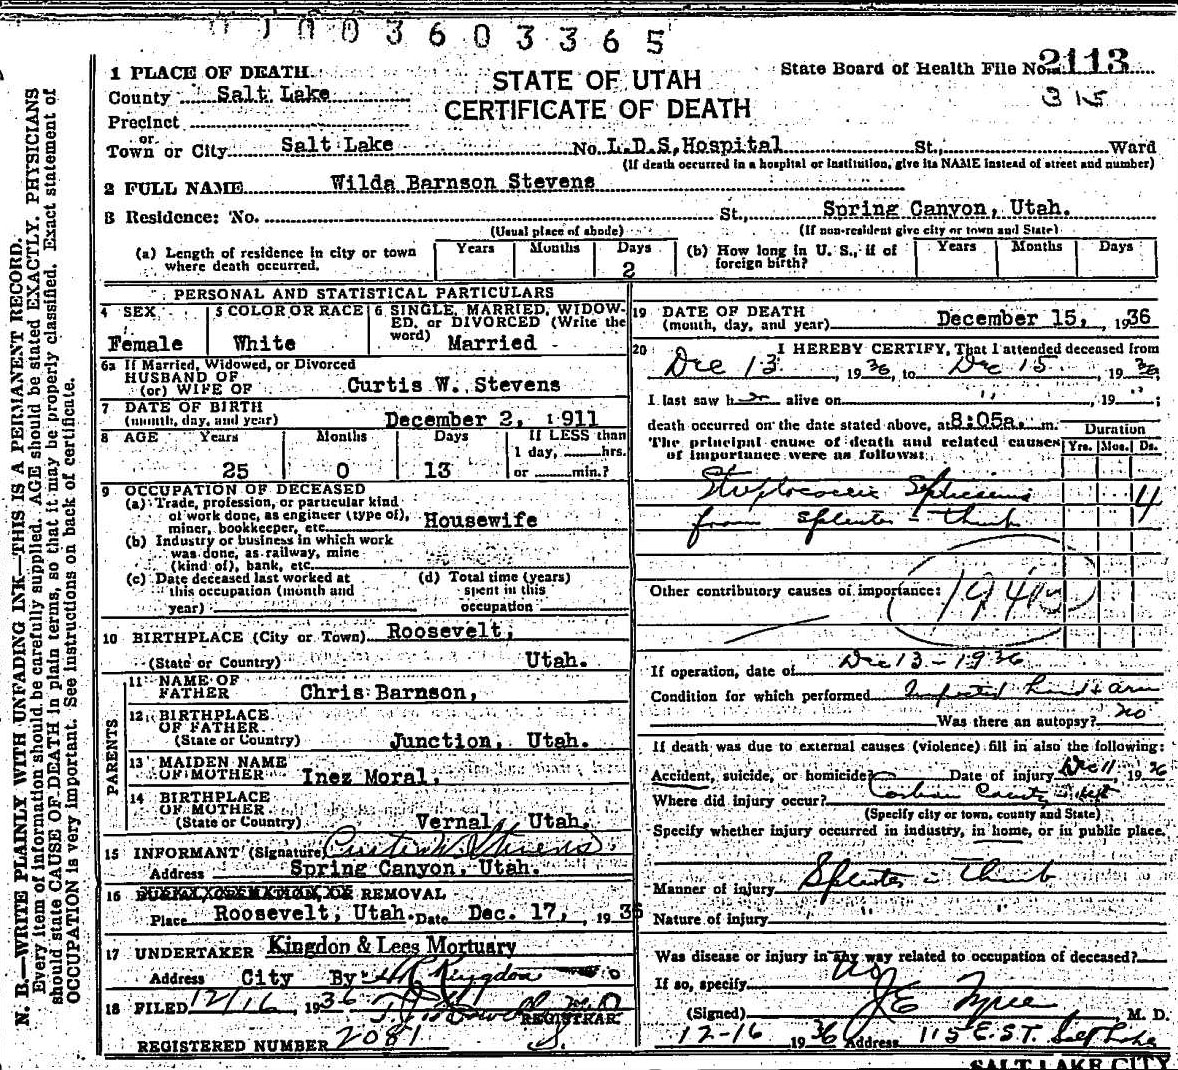 01003603365
1 PLACE OF DEATH.
STATE OF UTAH
CERTIFICATE OF DEATH
State Board of Health File No. 2113
315
County Salt Lake
Precinct
or
Town or City Salt Lake No. L.D.S. Hospital St., Ward
(If death occurred in a hospital or institution, give its NAME instead of street and number)
2 FULL NAME Wilda Barnson Stevens
3 Residence: No. St., Spring Canyon, Utah.
(Usual place of abode) (If non-resident give city or town and State)
(a) Length of residence in city or town where death occurred. Years Months Days 2
(b) How long in U. S., if of foreign birth? Years Months Days
PERSONAL AND STATISTICAL PARTICULARS
4 SEX Female
5 COLOR OR RACE White
6 SINGLE, MARRIED, WIDOWED, or DIVORCED (Write the word) Married
6a If Married, Widowed, or Divorced
HUSBAND OF
(or) WIFE OF Curtis W. Stevens
7 DATE OF BIRTH
(month, day, and year) December 2, 1911
8 AGE Years Months Days If LESS than
1 day, hrs.
25 0 13 or min.?
9 OCCUPATION OF DECEASED
(a) Trade, profession, or particular kind
of work done, as engineer (type of),
miner, bookkeeper, etc. Housewife
(b) Industry or business in which work
was done, as railway, mine
(kind of), bank, etc.
(c) Date deceased last worked at
this occupation (month and
year)
(d) Total time (years)
spent in this
occupation
10 BIRTHPLACE (City or Town) Roosevelt,
(State or Country) Utah.
PARENTS
11 NAME OF
FATHER Chris Barnson,
12 BIRTHPLACE
OF FATHER
(State or Country) Junction, Utah.
13 MAIDEN NAME
OF MOTHER Inez Moral,
14 BIRTHPLACE
OF MOTHER
(State or Country) Vernal, Utah.
15 INFORMANT (Signature) Curtis W Stevens
Address Spring Canyon, Utah.
16 BURIAL, CREMATION, OR REMOVAL
Place Roosevelt, Utah. Date Dec. 17, 1936
17 UNDERTAKER Kingdon & Lees Mortuary
Address City By Kingdon
18 FILED 12/16, 1936
REGISTRAR
REGISTERED NUMBER 2081
19 DATE OF DEATH
(month, day, and year) December 15, 1936
20 I HEREBY CERTIFY, That I attended deceased from
Dec 13, 1936, to Dec 15, 1936
I last saw her alive on " , 19 " ;
death occurred on the date stated above, at 8:05a. m.
The principal cause of death and related causes
of importance were as follows:
Duration
Yrs. Mos. Ds.
Streptococcic Septicemia 4
from splinter in thumb
Other contributory causes of importance:
If operation, date of Dec 13-1936
Condition for which performed Infected hand & arm
Was there an autopsy? no
If death was due to external causes (violence) fill in also the following:
Accident, suicide, or homicide? Date of injury Dec 11, 1936
Where did injury occur? Carbon County Utah
(Specify city or town, county and State)
Specify whether injury occurred in industry, in home, or in public place.
Manner of injury Splinter in Thumb
Nature of injury " "
Was disease or injury in any way related to occupation of deceased?
No
If so, specify
(Signed) J E Tyree M. D.
12-16 1936 Address 115 E. S.T. Salt Lake
SALT LAKE CITY
N. B.—WRITE PLAINLY WITH UNFADING INK—THIS IS A PERMANENT RECORD.
Every item of information should be carefully supplied. AGE should be stated EXACTLY. PHYSICIANS
should state CAUSE OF DEATH in plain terms, so that it may be properly classified. Exact statement of
OCCUPATION is very important. See instructions on back of certificate.